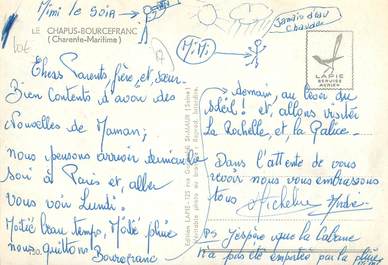 Mimi le soir
LE CHAPUS-BOURCEFRANC
(Charente-Maritime)
Mimi
Jamais d'eau
Chaude
LAPIE
SERVICE
AERIEN
Chers Parents, frère, et, sœur
Bien contents d'avoir des
Nouvelles de Maman;
nous pensons arriver dimanche
soir à Paris et, aller
vous voir Lundi.
Moitié beau temps, Moitié pluie
nous quittons Bourcefranc
130.
demain, au lever du
soleil! et, allons visiter
la Rochelle, et, la Palice.
Dans l'attente de vous
revoir nous vous embrassons
tous Micheline André
PS J'espère que la cabane
n'a pas été emportée par la pluie
Edition LAPIE
SAINT-MAUR (Seine)